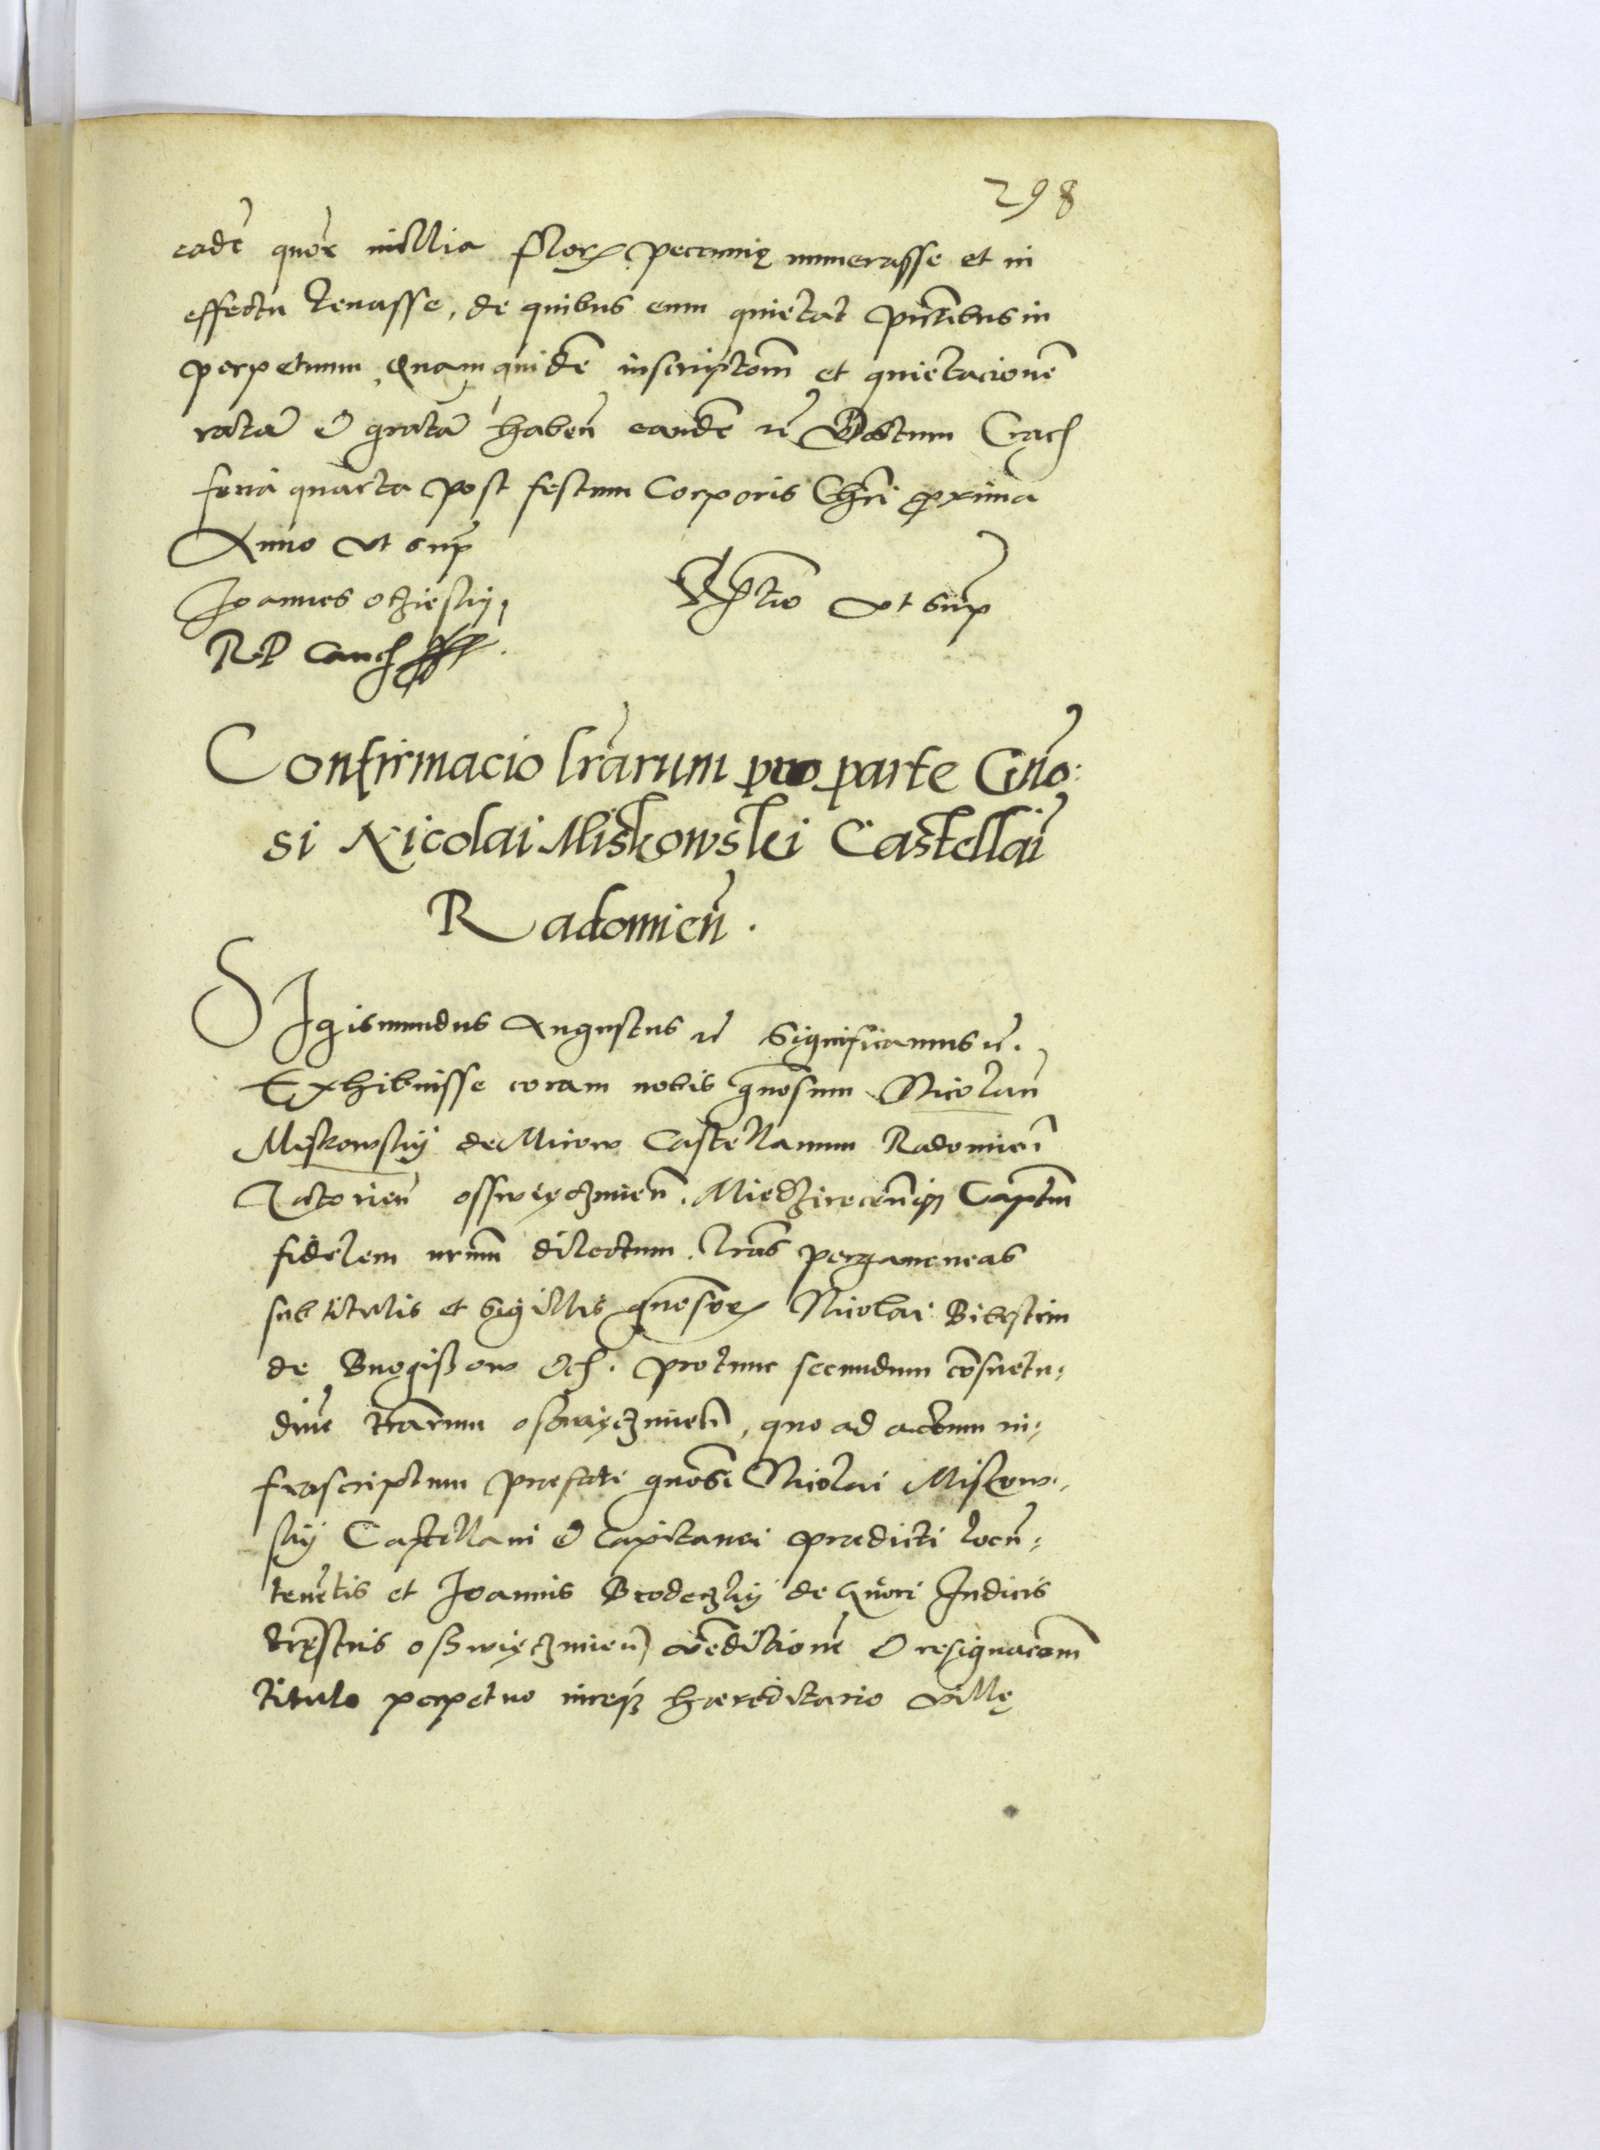 298
eade quor millia flor pecunię numerasse et in
effectu levasse, de quibus eum quietat pntibus in
perpetuum, Quam quide inscriptom et quietacione
rata et grata haben eande Datum Crac
feria quarta post festum Corporis Chri proxima
Anno ut sup
Joannes Oczieski
R P Canc
R tio ut sup
Confirmacio lrarum pro parte Gno:
si Nicolai Miskowski Castellai
Radomien.
SIgismundus Augustus Significamus
Exhibuisse coram nobis gnosum Nicolau
Miskowskij de Mirow Castellanum Radomien
Zatorien osswięczmien. Miedzirecenq Captm
fidelem nrum dilectum. lras pergameneas
sub titulis et sigillis gnosor Nicolai Biberstein
de Buogissow protunc secundum consuetu:
dine trarum oswięczmien, quo ad actum in:
frascriptum praefati gnosi Nicolai Miskow:
skij Castellani et Capitanei praedicti locu:
tenetis et Joannis Brodeczkij de Judicis
trrestris osswięczmien venditione et resignacom
titulo perpetuo iureq haereditario villę